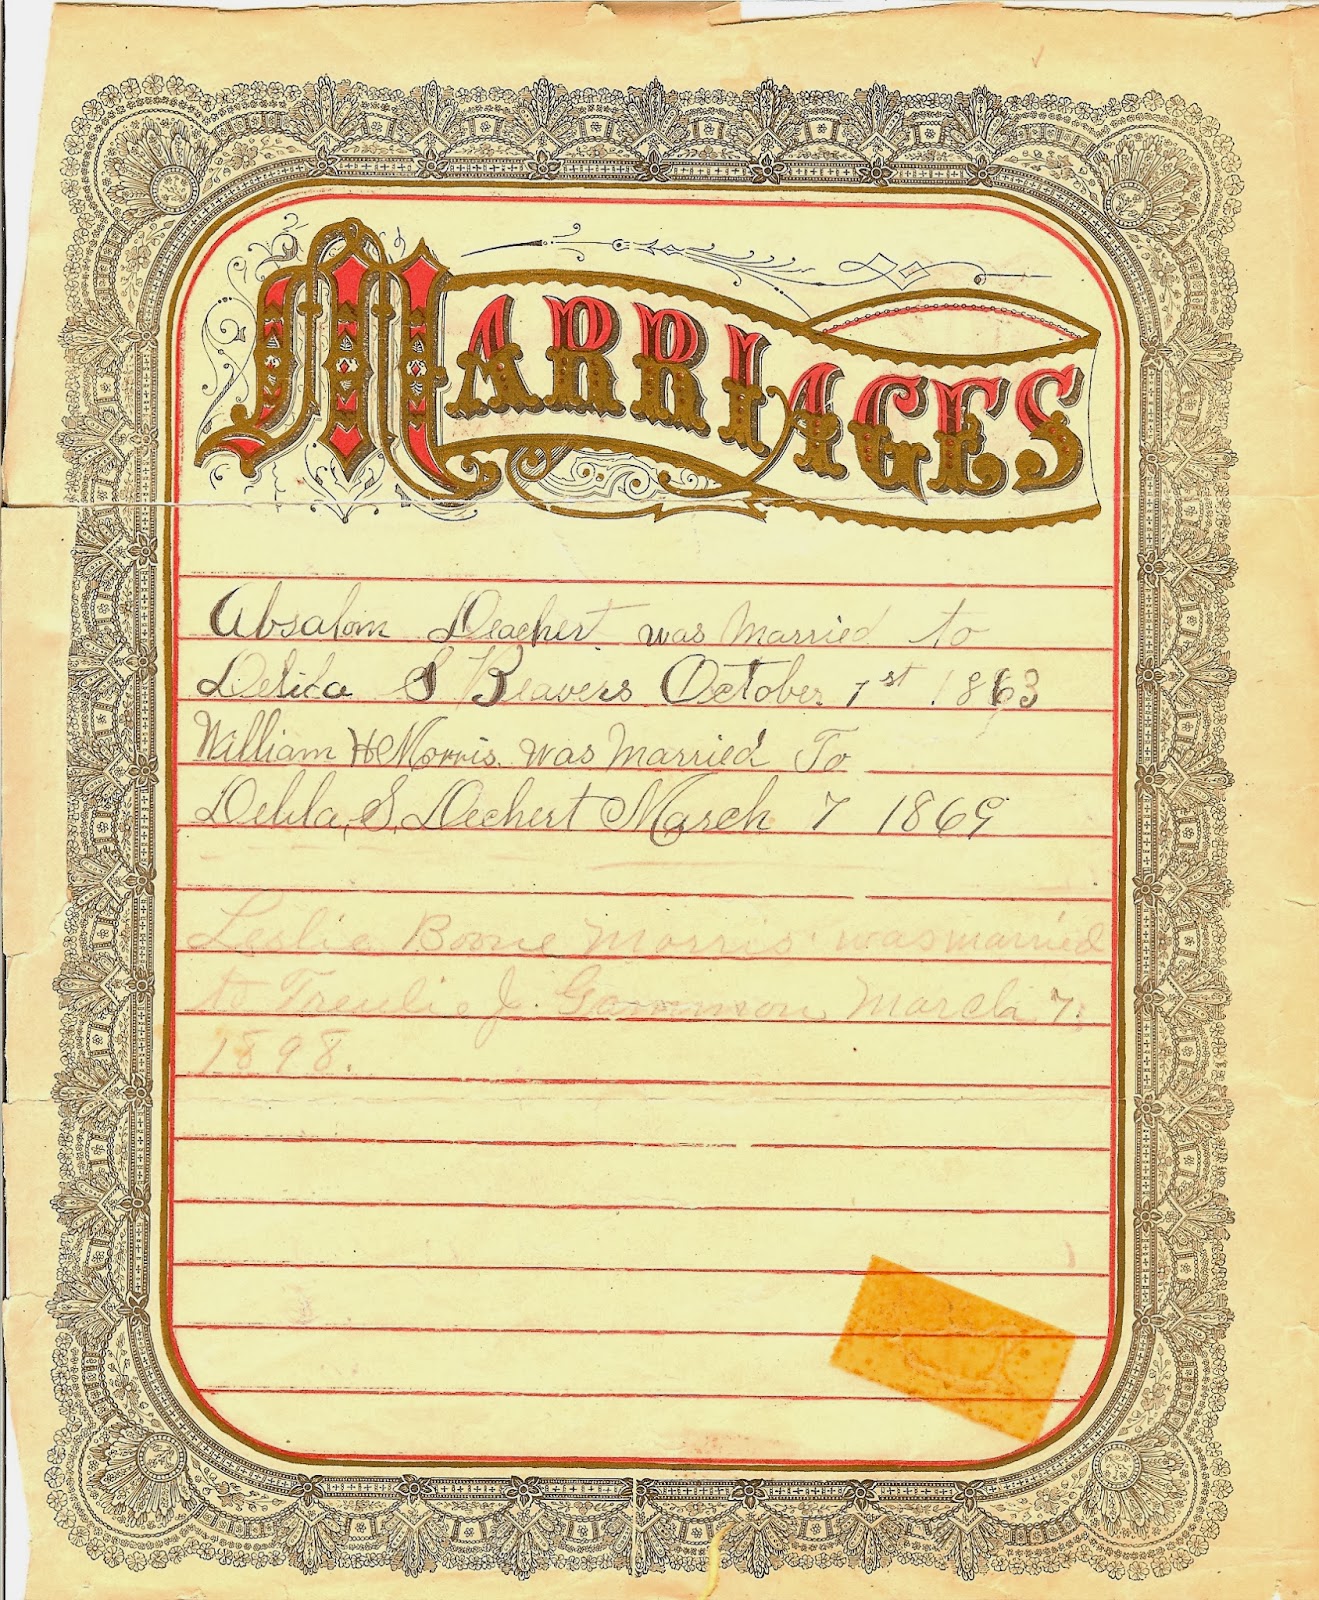 MARRIAGES
Absalom Deachert was married to
Delila S Beavers October 1st 1863
William H Morris was married To
Delila, S, Dechert March 7 1869
Leslie Boone Morris was married
to J. Gammon March 7,
1898.